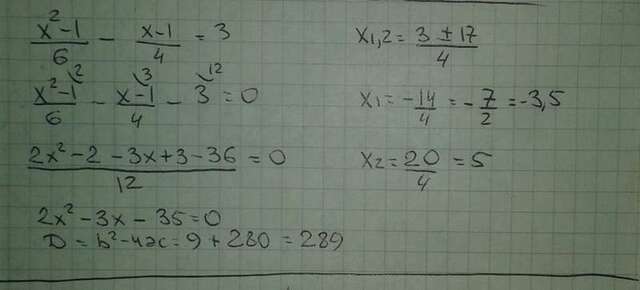 x²-1/6 - x-1/4 = 3
x²-1/6 ² - x-1/4 ³ - 3 ¹² = 0
2x²-2-3x+3-36/12 = 0
2x²-3x-35=0
D = b²-4ac = 9 + 280 = 289
x1,2 = 3 ± 17/4
x1 = -14/4 = -7/2 = -3,5
x2 = 20/4 = 5